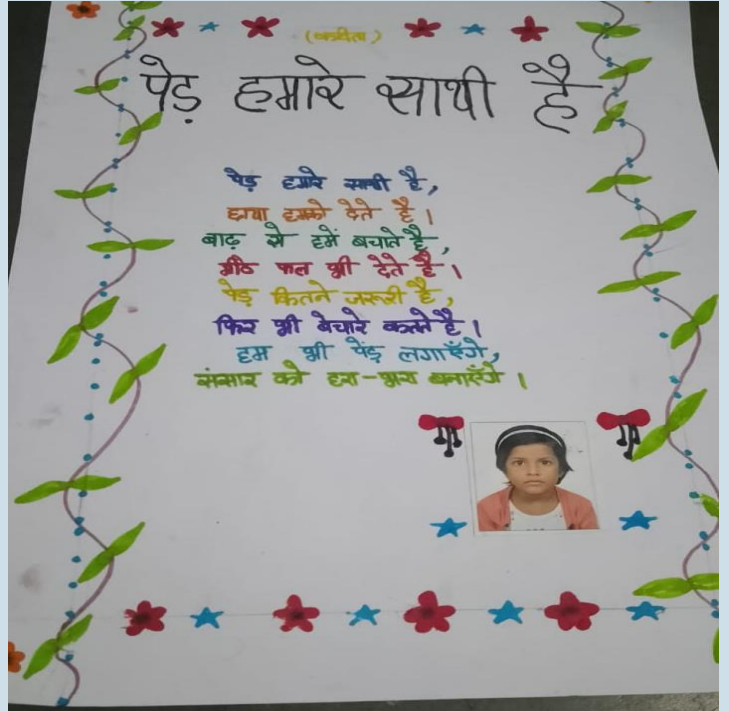 (कविता)
पेड़ हमारे साथी है
पेड़ हमारे साथी है,
छाया हमको देते है।
बाढ़ से हमें बचाते है,
मीठे फल भी देते है।
पेड़ कितने जरूरी है,
फिर भी बेचारे कटते है।
हम भी पेंड़ लगाएँगे,
संसार को हरा-भरा बनाएँगे।